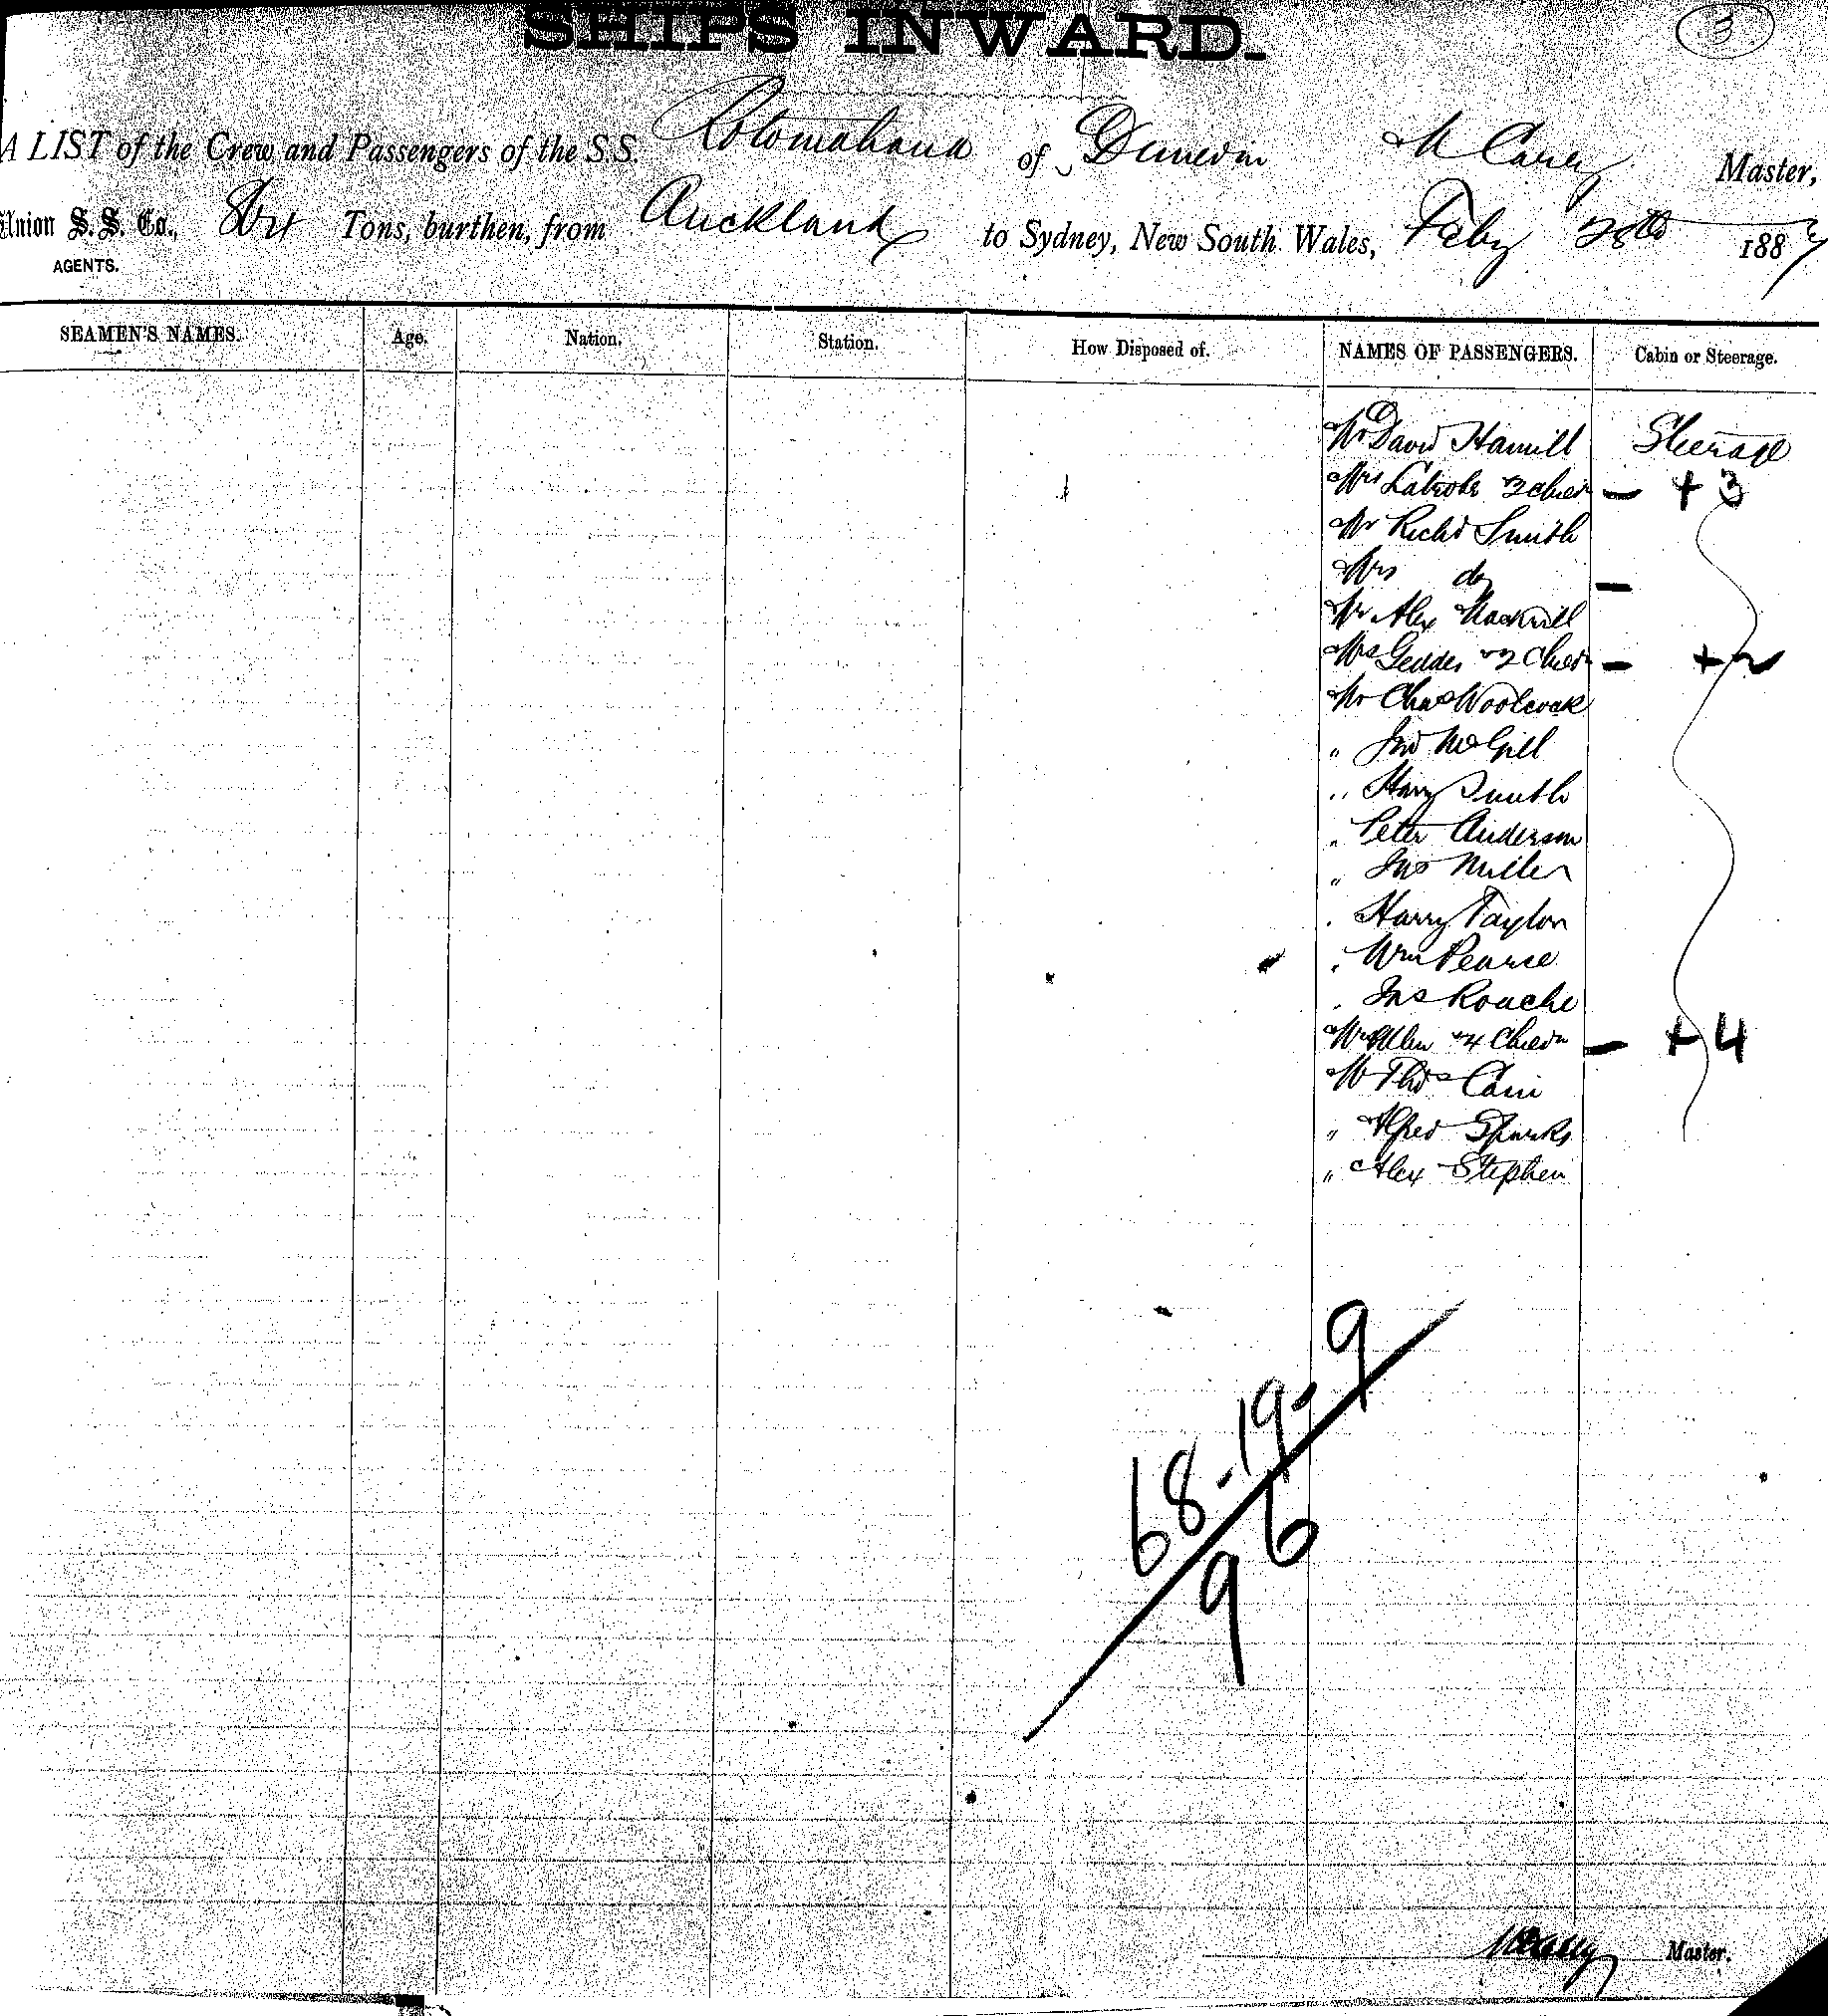 SHIPS INWARD.
3
A LIST of the Crew and Passengers of the S.S. Rotomahana of Dunedin M Carey Master,
Union S. S. Co., 864 Tons, burthen, from Auckland to Sydney, New South Wales, Feby 28th 1887
AGENTS.
SEAMEN'S NAMES. Age. Nation. Station. How Disposed of. NAMES OF PASSENGERS. Cabin or Steerage.
Mr David Hamill Steerage
Mrs Latrobe & 3 Childn — + 3
Mr Richd Smith
Mrs do —
Mr Alex
Mrs Geddes & 2 Childn — + 2
Mr Chas Woolcock
" Jno McGill
" Harry Smith
" Peter Anderson
" Jno Miller
" Harry Taylor
" Wm Pearce
" Jas Rouche
Mrs Allen & 4 Childn — + 4
Mr Thos Cain
" Alfred Sparks
" Alex Stephen
68-19-9
96
MCarey Master.